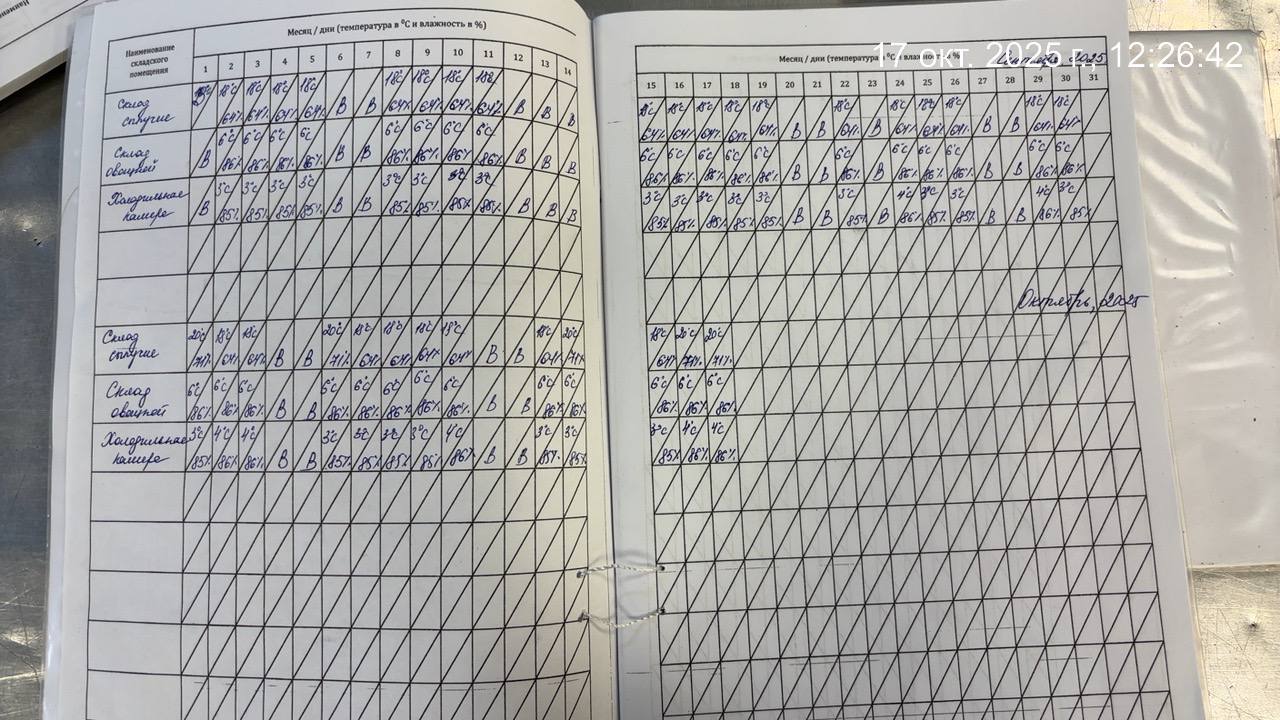 Месяц / дни (температура в ⁰С и влажность в %)
Наименование складского помещения
1 3 4 5 6 7 8 9 10 11 12 13 14
Склад сыпучие
18°C 18°C 18°C 18°C В В 18°C 18°C 18°C 18°C В В В
64% 64% 64% 64% 64% 64% 64% 64%
Склад овощной
В 6°C 6°C 6°C 6°C В В 6°C 6°C 6°C 6°C В В В
86% 86% 86% 86% 86% 86% 86% 86%
Холодильная камера
В 3°C 3°C 3°C 3°C В В 3°C 3°C 3°C 3°C В В В
85% 85% 85% 85% 85% 85% 85% 85%
Склад сыпучие
20°C 18°C 18°C В В 20°C 18°C 18°C 18°C 18°C В В 18°C 20°C
71% 64% 64% 71% 64% 64% 64% 64% 64% 71%
Склад овощной
6°C 6°C 6°C В В 6°C 6°C 6°C 6°C 6°C В В 6°C 6°C
86% 86% 86% 86% 86% 86% 86% 86% 86% 86%
Холодильная камера
3°C 4°C 4°C В В 3°C 3°C 3°C 3°C 4°C В В 3°C 3°C
85% 86% 86% 85% 85% 85% 85% 86% 85% 85%
17 окт. 2025 г., 12:26:42
Месяц / дни (температура в ⁰С и влажность в %
Сентябрь 2025
15 16 17 18 19 20 21 22 23 24 25 26 27 28 29 30 31
18°C 18°C 18°C 18°C 18°C В В 18°C В 18°C 18°C 18°C В В 18°C 18°C
64% 64% 64% 64% 64% 64% 64% 64% 64% 64% 64%
6°C 6°C 6°C 6°C 6°C В В 6°C В 6°C 6°C 6°C В В 6°C 6°C
86% 86% 86% 86% 86% 86% 86% 86% 86% 86% 86%
3°C 3°C 3°C 3°C 3°C В В 3°C В 4°C 3°C 3°C В В 4°C 3°C
85% 85% 85% 85% 85% 85% 86% 85% 85% 86% 85%
Октябрь, 2025
18°C 20°C 20°C
64% 71% 71%
6°C 6°C 6°C
86% 86% 86%
3°C 4°C 4°C
85% 86% 86%